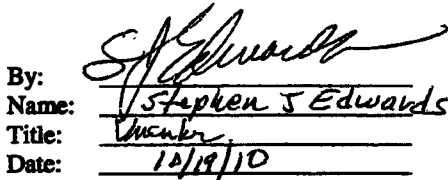 By: SJEdwards
Name: Stephen J Edwards
Title:
Date: 10/19/10